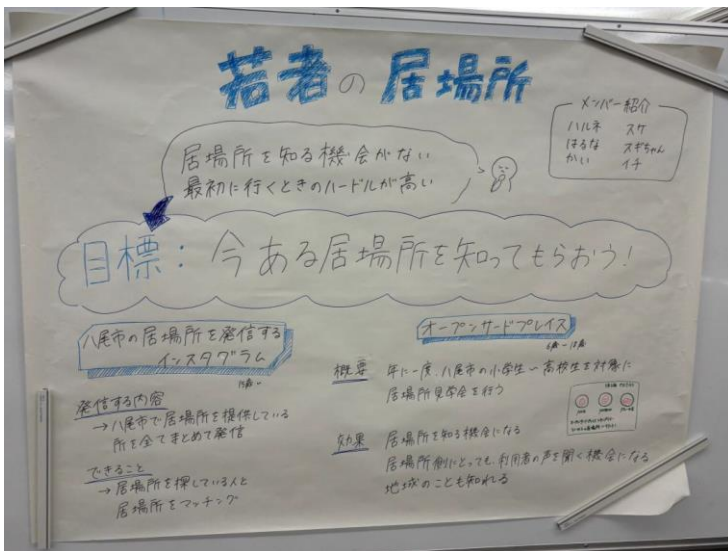 若者の居場所
メンバー紹介
ハルネ スケ
はるな スギちゃん
かい イチ
居場所を知る機会がない
最初に行くときのハードルが高い
目標：今ある居場所を知ってもらおう！
八尾市の居場所を発信する
インスタグラム
発信する内容
→八尾市で居場所を提供している
所を全てまとめて発信
できること
→居場所を探している人と
居場所をマッチング
オープンサードプレイス
概要 年に一度、八尾市の小学生〜高校生を対象に
居場所見学会を行う
効果 居場所を知る機会になる
居場所側にとっても、利用者の声を聞く機会になる
地域のことも知れる